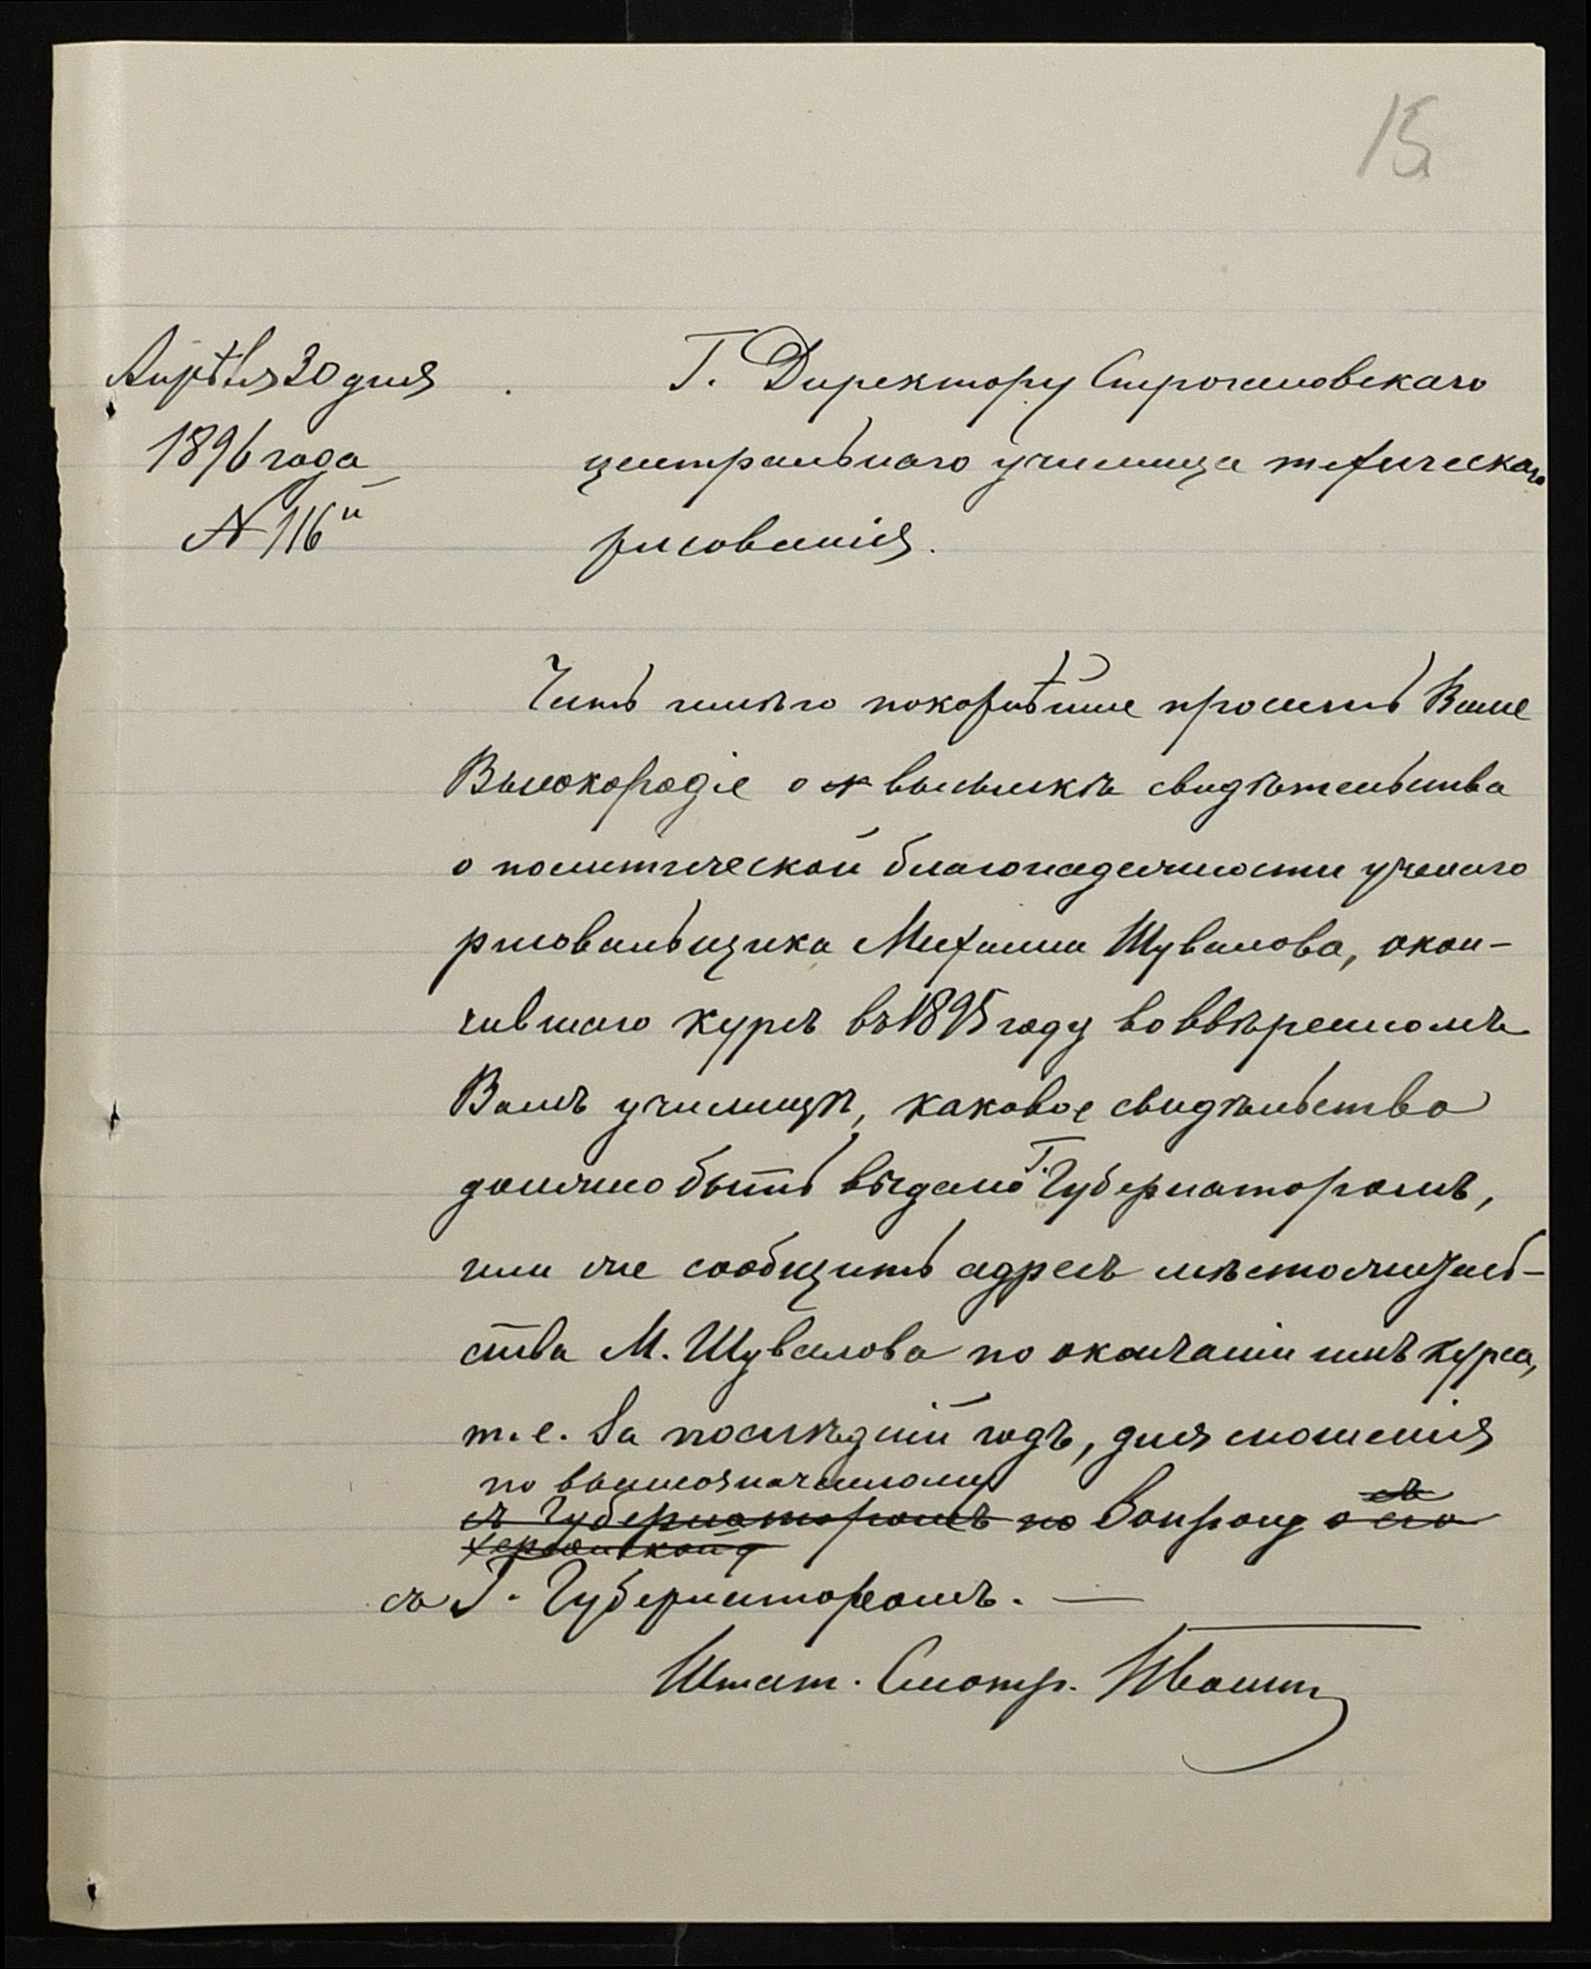 15
Апрѣля 30 дня
1896 года
N 116й
Г. Директору Строгановскаго
центральнаго училища техическаго
рисованія.
Честь имѣю покорнѣйше просить Ваше
Высокородіе о высылкѣ свидѣтельства
о политической благонадежности ученаго
рисовальщика Михаила Шувалова, окон-
чившаго курсъ въ 1895 году во ввѣренномъ
Вамъ училищѣ, каковое свидѣльство
должно быть выдано Г. Губернаторомъ,
или же сообщить адресъ мѣстожитель-
ства М. Шувалова по окончаніи имъ курса,
т. е. за послѣдній годъ, для сношенія
по вышеозначенному
съ Губернаторомъ по вопросу о его
Херсонской
съ Г. Губернаторомъ. —
Штат. Смотр.